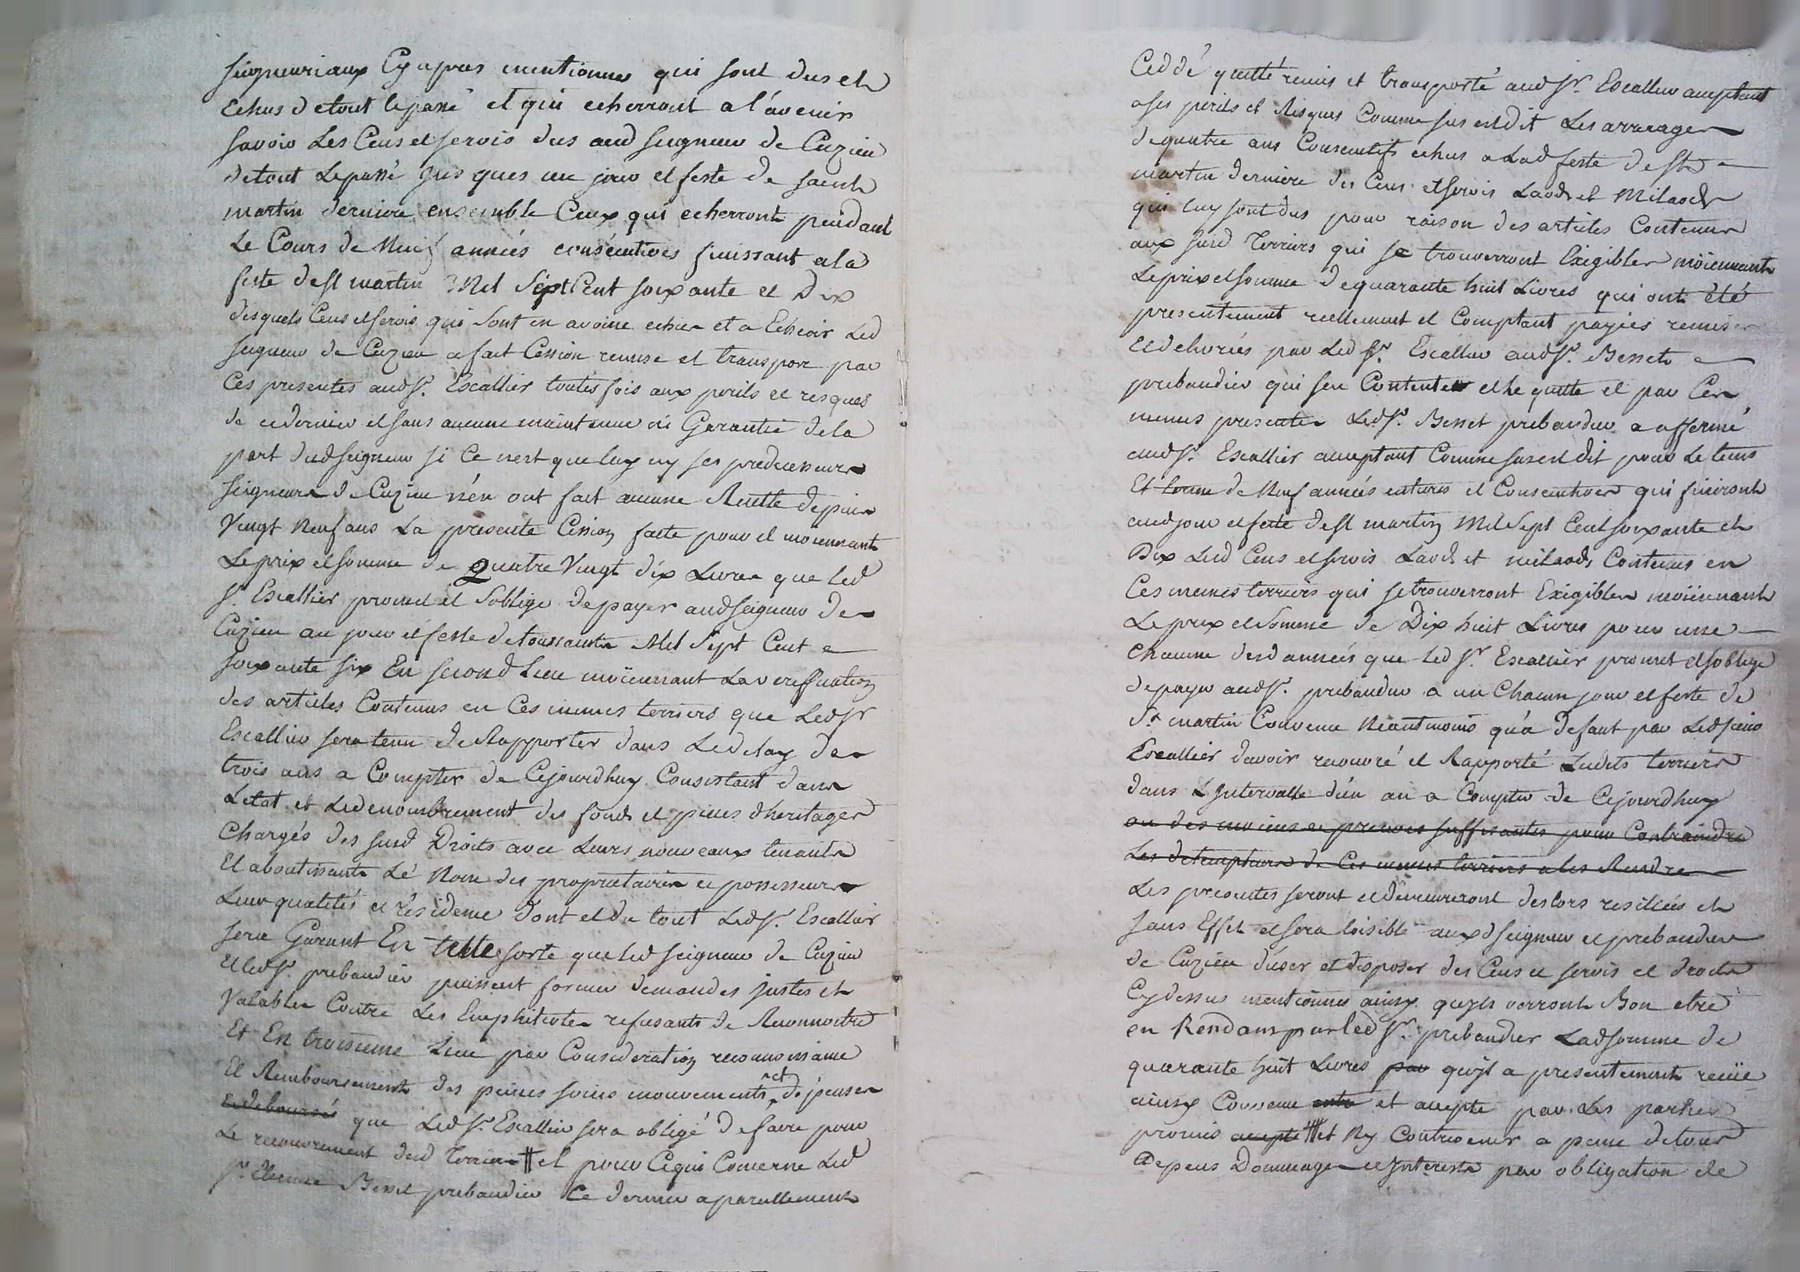 seigneuriaux Cy apres mentionnes qui sont dus et
Echus de tout le passé et qui echerront a l'avenir
savoir Les Cens et servis dus aud seigneur de Cuzieu
de tout Le passé jusques au jour et feste de saint
martin derniere ensemble Ceux qui echerront pendant
Le Cours de Neuf années consécutives finissant a la
feste de st martin Mil Sept Cent soixante et Dix
desquels Cens et servis qui sont en avoine echue et a Echeoir Led
seigneur de Cuzieu a fait Cession remise et transport par
Ces presentes aud sr. Escallier toutes fois aux perils et risques
de ce dernier et sans aucune maintenue ni Garantie de la
part dud seigneur si Ce n'est que luy ny ses predecesseurs
seigneurs de Cuzieu n'en ont fait aucune depuis
Vingt Neuf ans La presente Cession faite pour et moiennant
Le prix et somme de Quatre Vingt dix Livres que led
sr. Escallier promet et s'oblige de payer aud seigneur de
Cuzieu au jour et feste de toussaints Mil Sept Cent
soixante six En second Lieu moiennant La verification
des articles Contenus en Ces mêmes terriers que Led sr
Escallier sera tenu de Rapporter dans Le delay de
trois ans a Compter de Cejourdhuy Consistant dans
L'etat et Le denombrement des fonds et pieces d'heritages
Chargés des susd Droits avec Leurs nouveaux tenants
Et aboutissants Le Nom des proprietaires et possesseurs
Leur qualités et résidence Dont et du tout Led sr. Escallier
sera Garant En telle sorte que led seigneur de Cuzieu
Et led sr. prebandier puissent former demandes justes et
Valables Contre Les Emphiteotes refusants de Reconnoitre
Et En troisieme Lieu par Consideration reconnoissance
Et Remboursement des peines soins mouvements et depenses
et deboursés que Led sr. Escallier sera obligé de faire pour
Le recouvrement desd Terriers # et pour Ce qui Concerne Led
sr. Etienne Besset prebandier Ce dernier a pareillement
Ceddé quitté remis et transporté aud sr. Escallier acceptant
a ses perils et Risques Comme sus est dit Les arrerages
de quatre ans Consecutifs echus a Lad feste de st
martin derniere des Cens et servis Laods et Milaods
qui luy sont dus pour raison des articles Contenus
aux susd Terriers qui se trouverront Exigibles moiennant
Le prix et somme de quarante huit Livres qui ont été
presentement reellement et Comptant payées remises
et delivrées par Led sr. Escallier aud sr. Besset
prebandier qui s'en Contente et le quitte et par Ces
memes presentes Led sr. Besset prebandier a affermé
aud sr. Escallier acceptant Comme sus est dit pour Le tems
Et terme de Neuf années entieres et Consecutives qui finiront
aud jour et feste de st martin Mil Sept Cent soixante et
Dix Lesd Cens et servis Laods et milaods Contenus en
Ces memes terriers qui se trouverront Exigibles moiennant
Le prix et Somme de Dix huit Livres pour une
Chacune desd années que led sr. Escallier promet et s'oblige
de payer aud sr. prebandier a un Chacun jour et feste de
st martin Convenu Neantmoins qu'a defaut par Led sieur
Escallier d'avoir recouvré et Rapporté Lesdits terriers
dans L'Intervalle d'un an a Compter de Cejourdhuy
ou des moiens et preuves suffisantes pour Contraindre
Les detempteurs de Ces memes terriers a les Rendre
Les presentes seront et demeureront deslors resiliées et
sans Effet et sera loisible auxd seigneur et prebandier
de Cuzieu d'user et disposer des Cens et servis et droits
Cy dessus mentionnes ainsy qu'ils verront Bon etre
en Rendant par led sr. prebandier Lad somme de
quarante huit Livres par qu'il a presentement reçüe
ainsy Convenu entre et accepté par Les parties
promis accepté # et Ny Contrevenir a peine de tous
Depens Dommages et Interests par obligation de